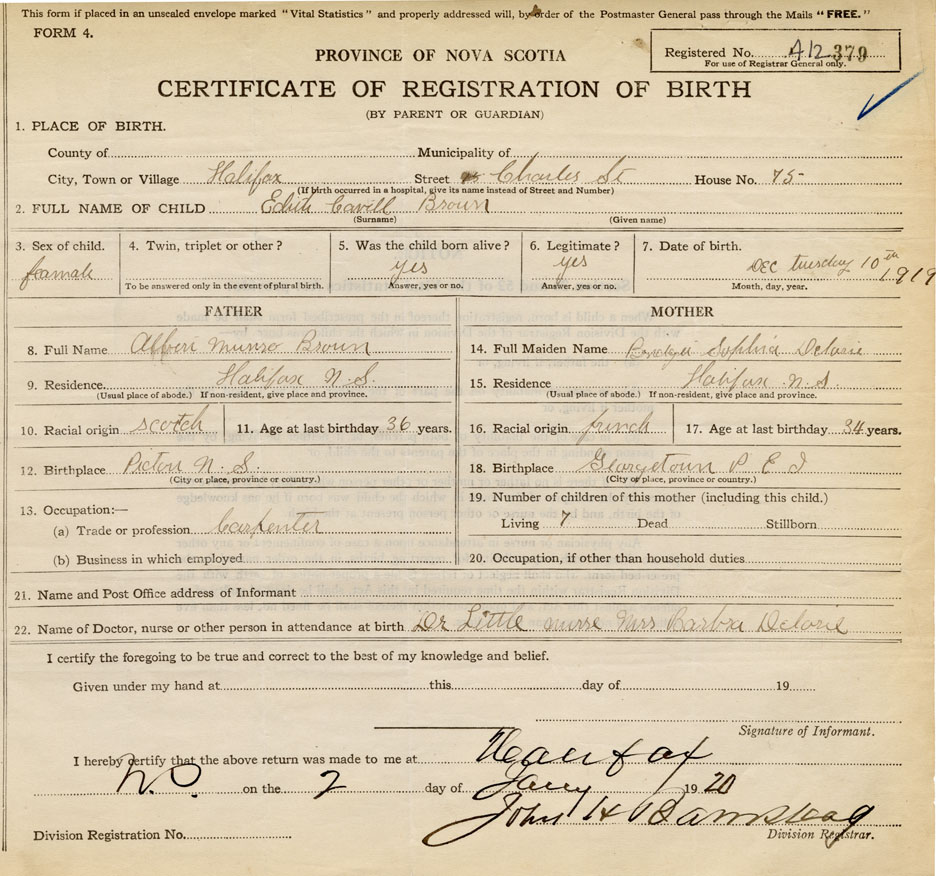 This form if placed in an unsealed envelope marked "Vital Statistics" and properly addressed will, by order of the Postmaster General pass through the Mails "FREE."
FORM 4.
Registered No. A12 379
For use of Registrar General only.
PROVINCE OF NOVA SCOTIA
CERTIFICATE OF REGISTRATION OF BIRTH
(BY PARENT OR GUARDIAN)
1. PLACE OF BIRTH.
County of Municipality of
City, Town or Village Halifax Street Charles St House No. 75
(If birth occurred in a hospital, give its name instead of Street and Number)
2. FULL NAME OF CHILD Edith Cavell Brown
(Surname) (Given name)
3. Sex of child. 4. Twin, triplet or other? 5. Was the child born alive? 6. Legitimate? 7. Date of birth.
feamale yes yes DEC tuesday 10th 1919
To be answered only in the event of plural birth. Answer, yes or no. Answer, yes or no. Month, day, year.
FATHER MOTHER
8. Full Name Munro Brown 14. Full Maiden Name Sophia Delorie
9. Residence Halifax N.S. 15. Residence Halifax N.S.
(Usual place of abode.) If non-resident, give place and province. (Usual place of abode.) If non-resident, give place and province.
10. Racial origin scotch 11. Age at last birthday 36 years. 16. Racial origin french 17. Age at last birthday 34 years.
12. Birthplace Pictou N.S. 18. Birthplace Georgetown P E I
(City or place, province or country.) (City or place, province or country.)
13. Occupation:— 19. Number of children of this mother (including this child.)
(a) Trade or profession Carpenter Living 7 Dead Stillborn
(b) Business in which employed 20. Occupation, if other than household duties
21. Name and Post Office address of Informant
22. Name of Doctor, nurse or other person in attendance at birth Dr Little nurse Mrs Barbra Delorie
I certify the foregoing to be true and correct to the best of my knowledge and belief.
Given under my hand at this day of 19
Signature of Informant.
I hereby certify that the above return was made to me at Halifax
N.S. on the 2 day of Jany 1920
John H
Division Registration No. Division Registrar.